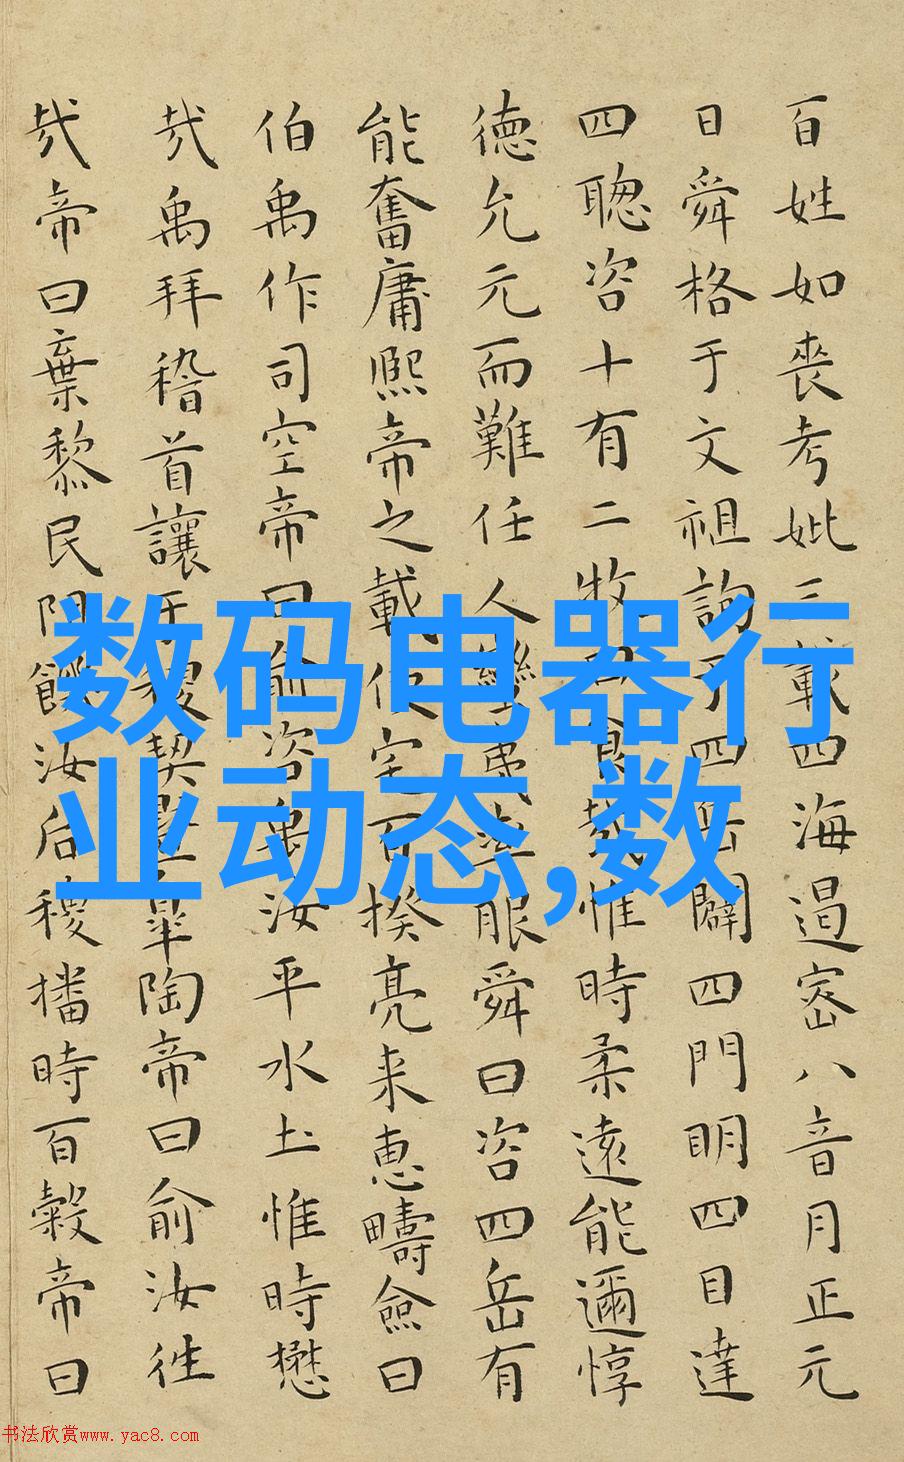 百姓如喪考妣三載四海遏密八音月正元
日舜格于文祖詢于四岳闢四門明四目達
四聦咨十有二牧曰食哉惟時柔遠能邇惇
徳允元而難任人蠻夷率服舜曰咨四岳有
能奮庸熙帝之載使宅百揆亮来惠疇僉曰
伯禹作司空帝曰俞咨禹汝平水土惟時懋
哉禹拜稽首讓于稷契暨皐陶帝曰俞汝往
哉帝曰棄黎民阻饑汝后稷播時百穀帝曰
数码电器行
业动态,数
书法欣赏www.yac8.com